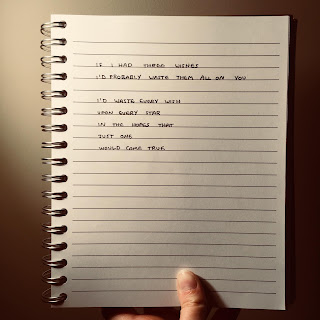 IF I HAD THREE WISHES
I'D PROBABLY THEM ALL ON YOU
I'D WASTE EVERY WISH
UPON EVERY STAR
IN THE HOPES THAT
JUST ONE
WOULD COME TRUE